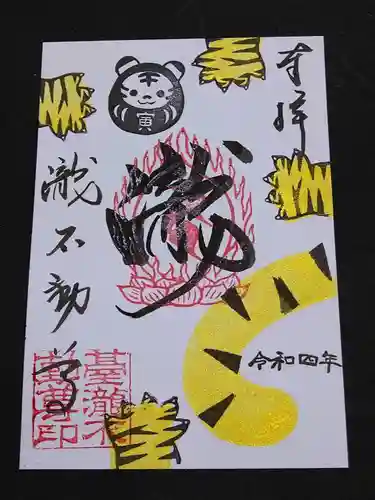 奉拝
令和四年
寅
瀧不動尊
臺瀧不
動尊印